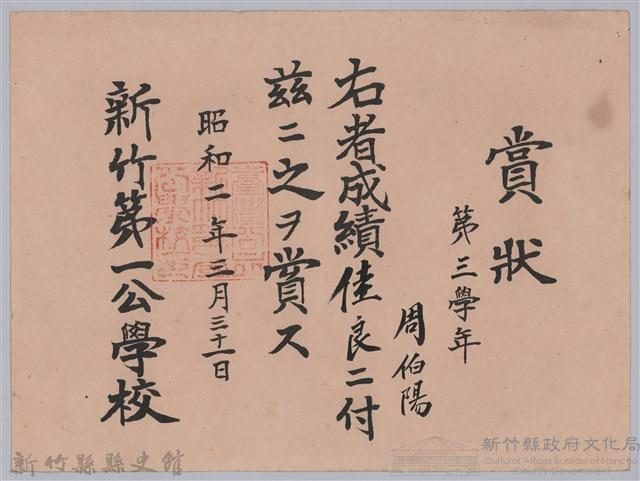 賞狀
第三學年
周伯陽
右者成績佳良ニ付
茲ニ之ヲ賞ス
昭和二年三月三十一日
新竹第一公學校
新竹縣縣史館
新竹縣政府文化局
Cultural Affairs Bureau of Hsinchu
County Government